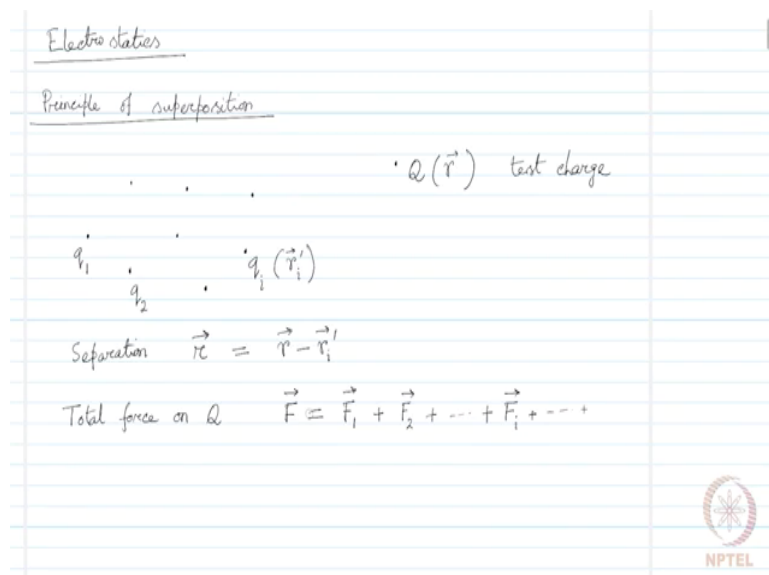 Electrostatics
Principle of superposition
· Q (r⃗) test charge
q₁
q₂
qᵢ (r⃗ᵢ′)
Separation r⃗ = r⃗ − r⃗ᵢ′
Total force on Q F⃗ = F⃗₁ + F⃗₂ + --- + F⃗ᵢ + --- +
NPTEL